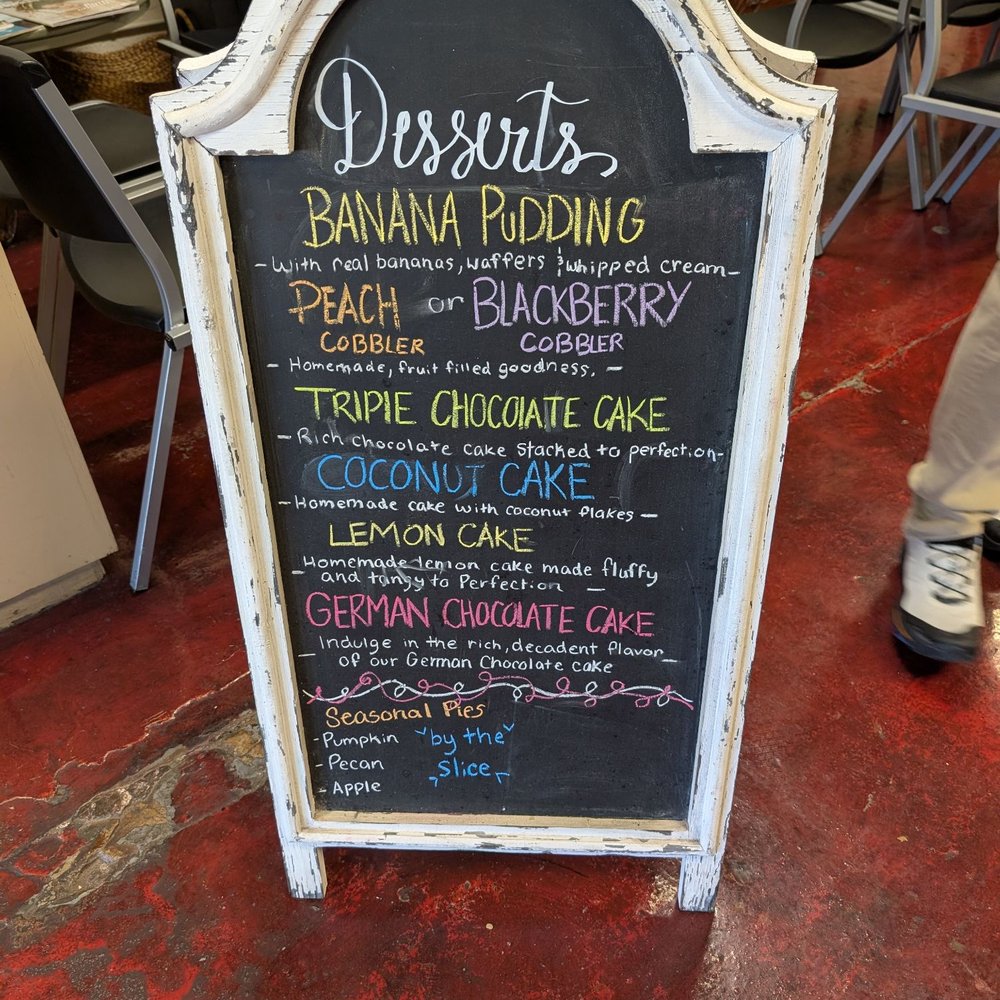 Desserts
BANANA PUDDING
- With real bananas, waffers & whipped cream -
PEACH or BLACKBERRY
COBBLER COBBLER
- Homemade, fruit filled goodness. -
TRIPLE CHOCOLATE CAKE
- Rich chocolate cake stacked to perfection -
COCONUT CAKE
- Homemade cake with coconut flakes -
LEMON CAKE
- Homemade lemon cake made fluffy
and tangy to Perfection -
GERMAN CHOCOLATE CAKE
- Indulge in the rich, decadent flavor -
of our German Chocolate cake
Seasonal Pies
- Pumpkin "by the
- Pecan slice"
- Apple